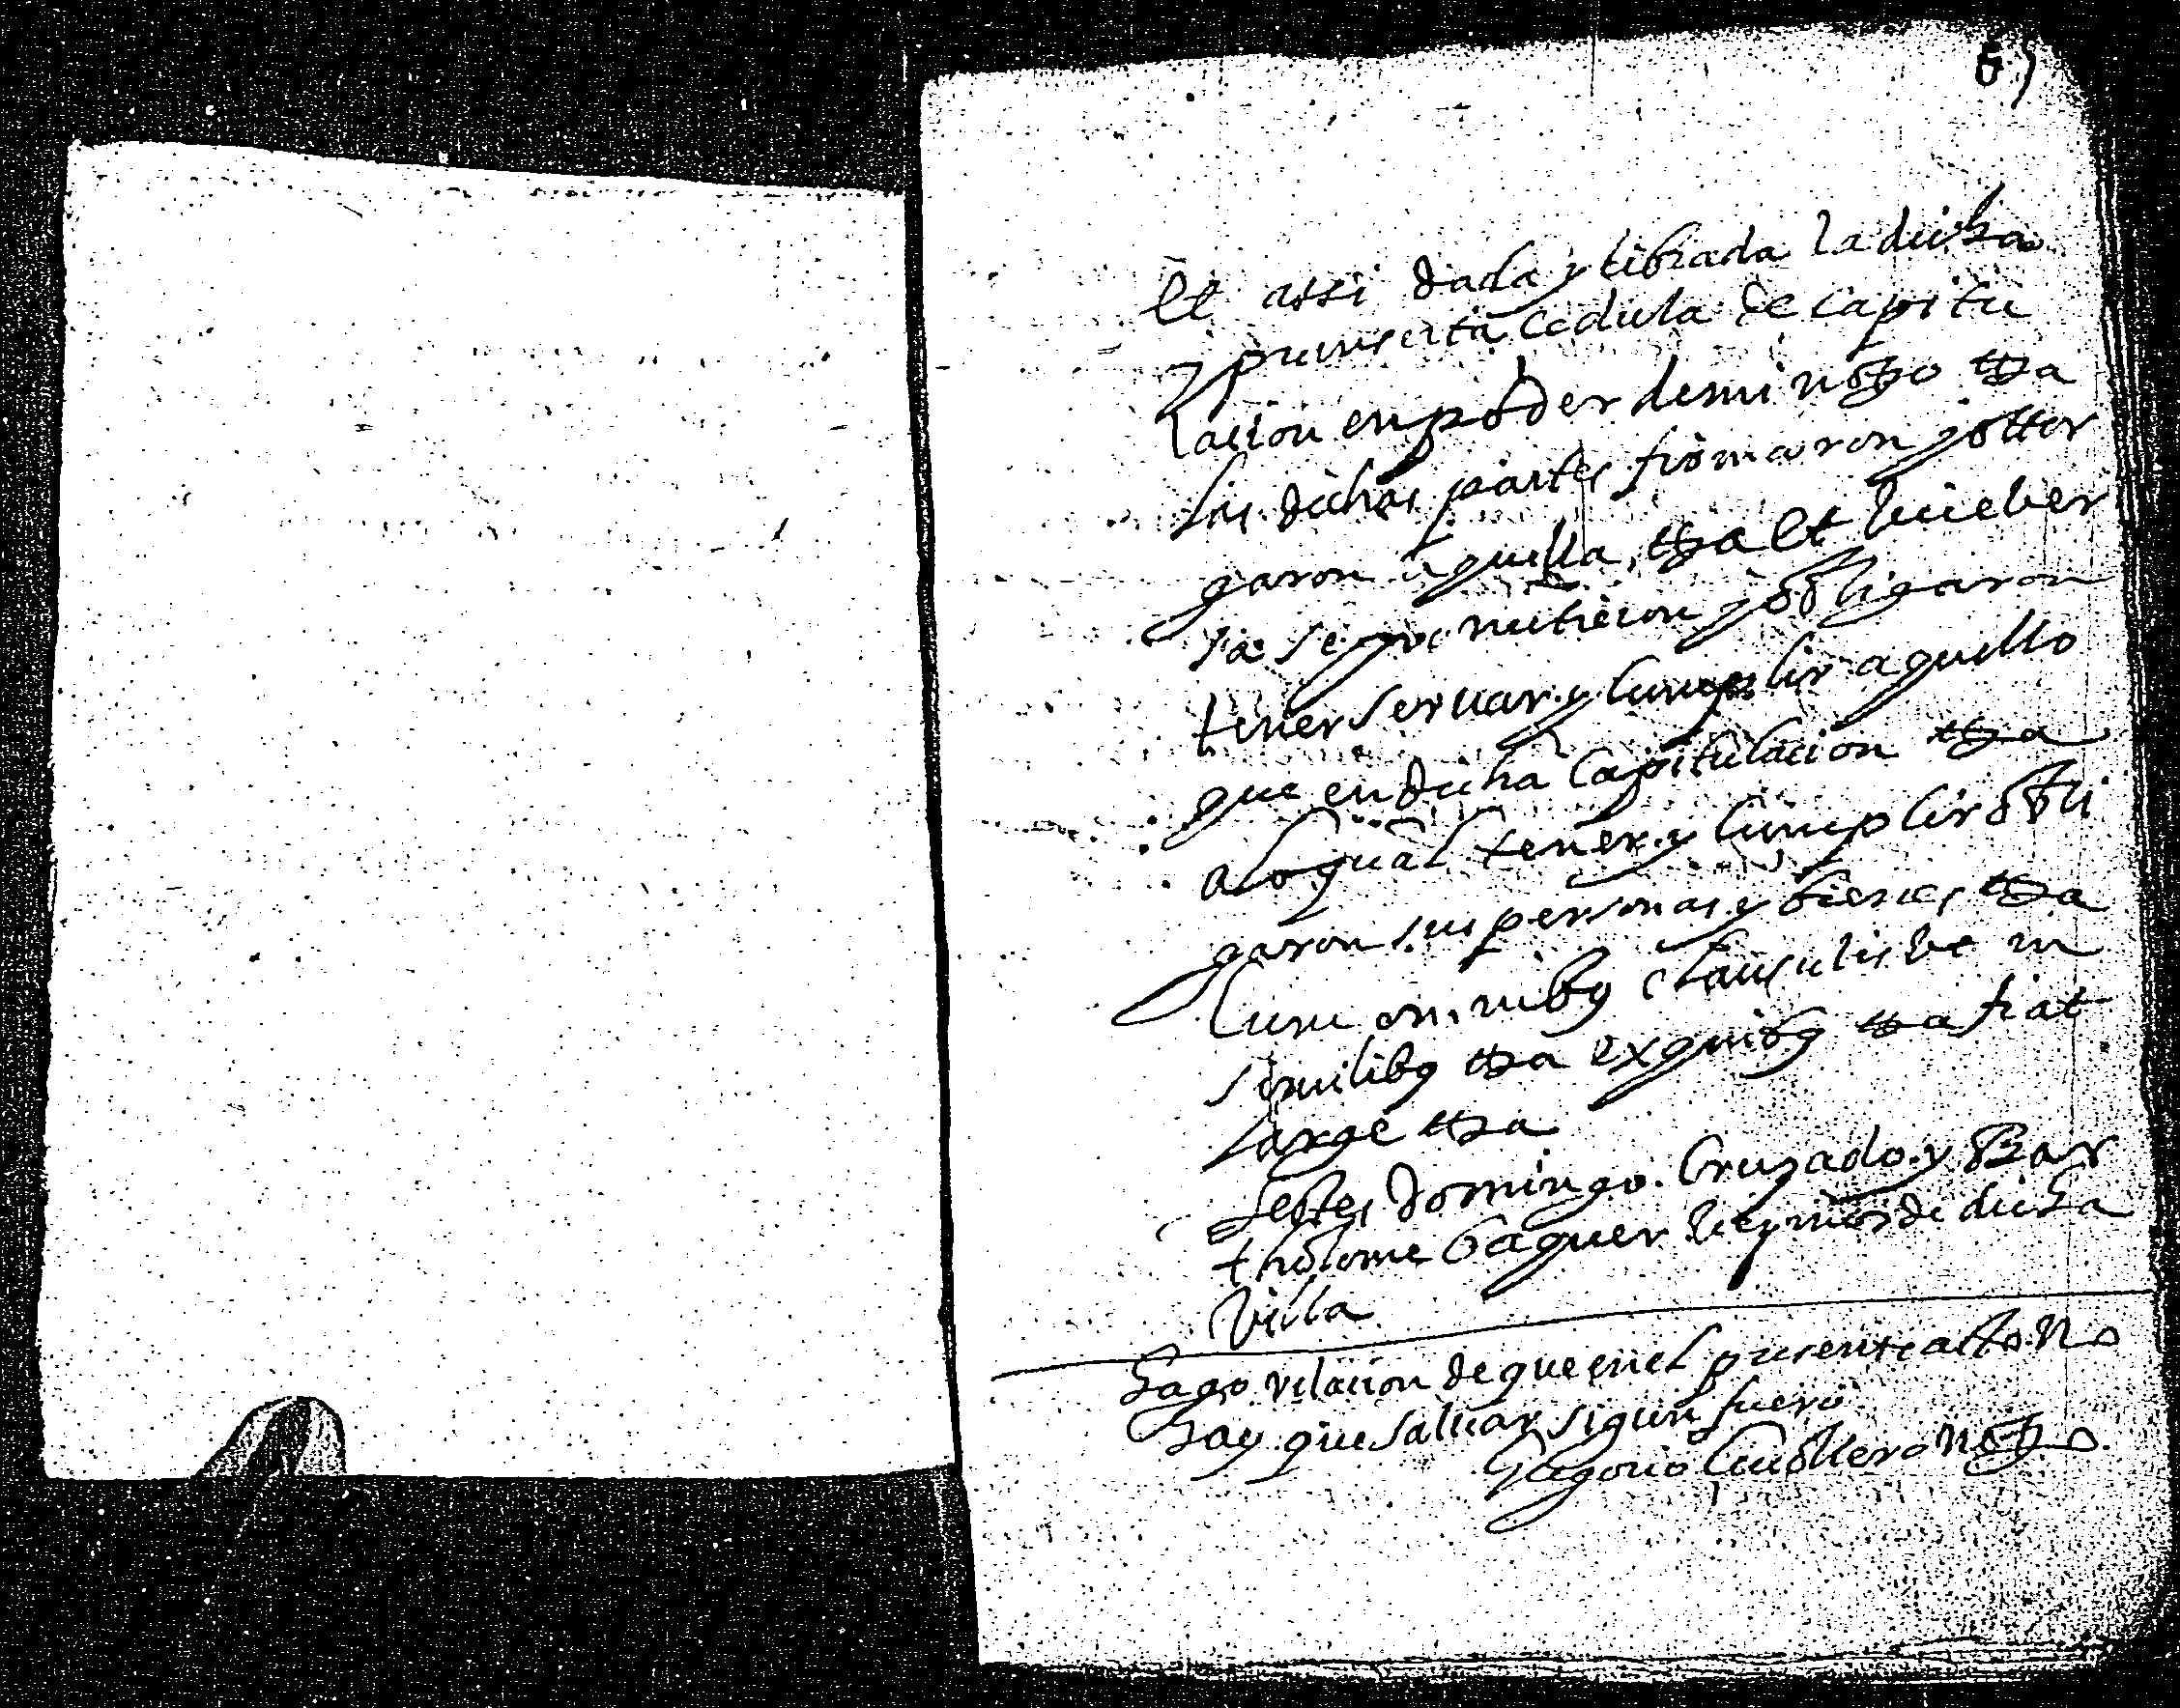 67
Et assi dada y librada la dicha
y preinserta cedula de capitu
lacion en poder de mi notº etta
las dichas partes firmaron y ottor
garon aquella, etta et huieber
sa se prometieron y obligaron
tener seruar y cumplir aquello
que en dicha capitulacion etta
a lo qual tener y cumplir obli
garon sus personas y bienes etta
Cum omnibq clausulis ut in
similibq etta ex quibq etta fiat
large etta
testes Domingo Cruzado y Bar
tholome Baquer vezinos de dicha
Villa
Hago relacion de que en el presente acto no
hay que saluar sigun fuero
Gregorio Cauallero notº